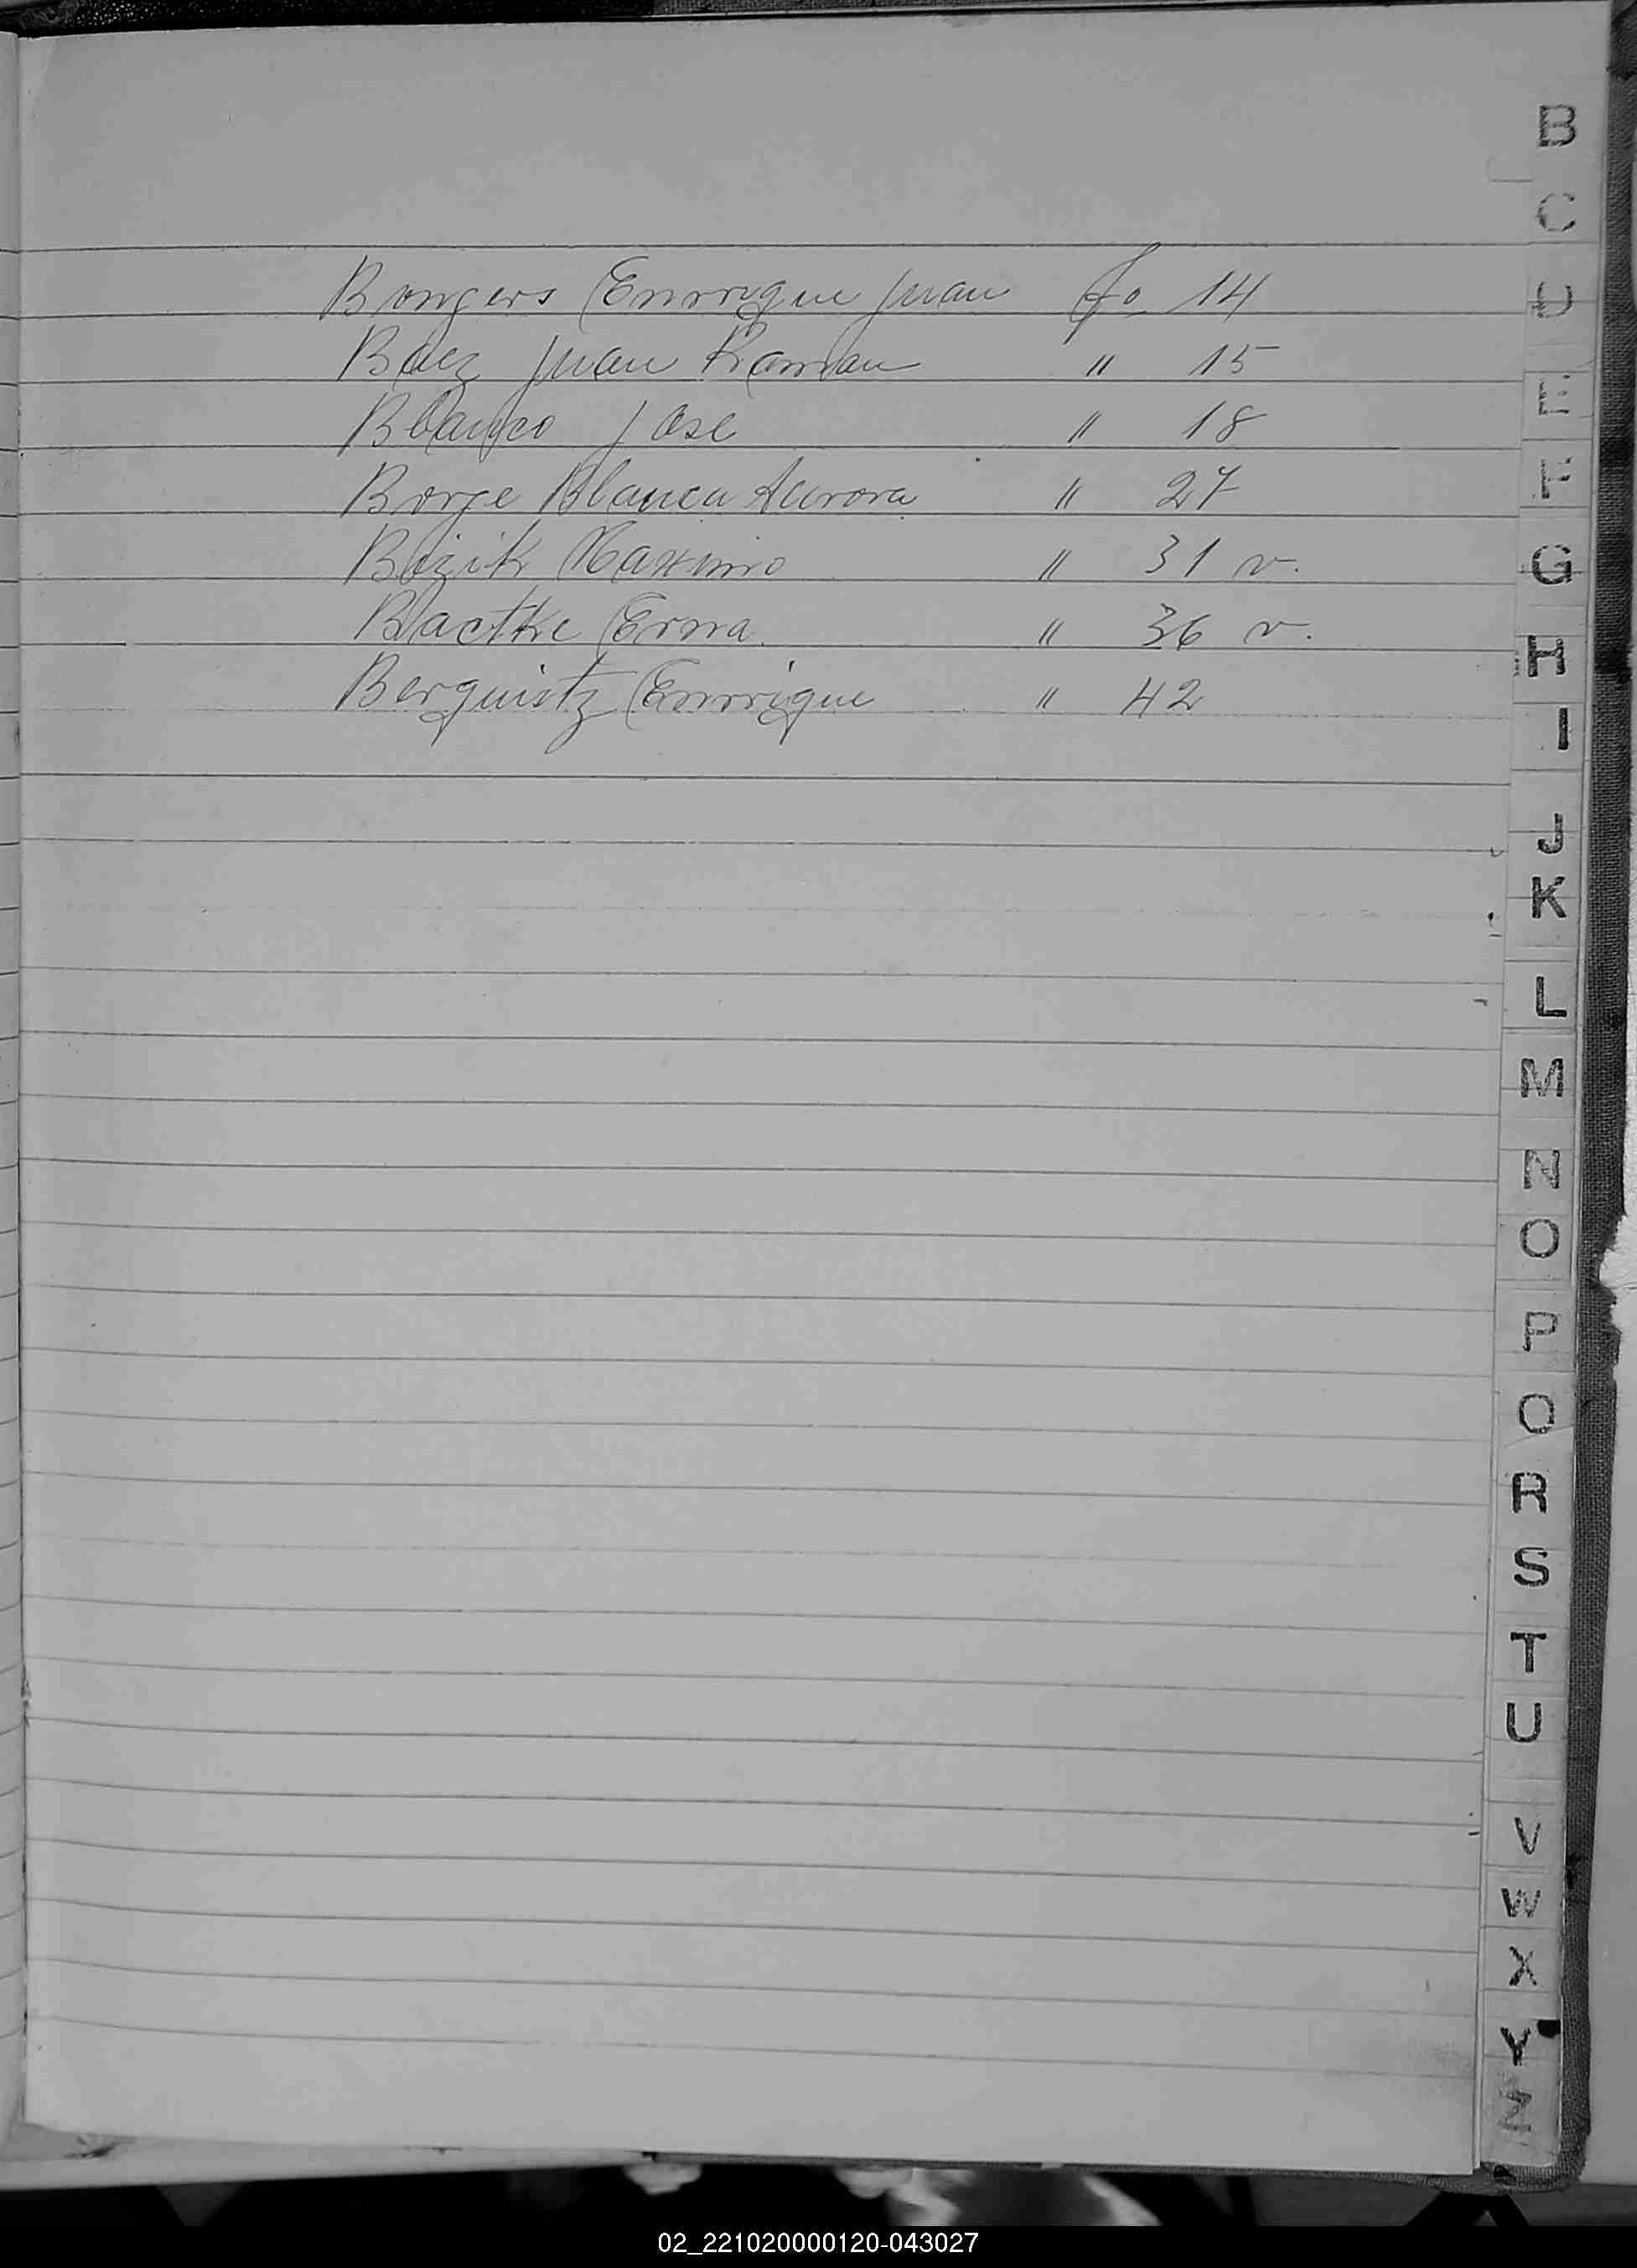 Bongers Enrrique Juan fo 14
Baez Juan Ramon " 15
Blanco Jose " 18
Borge Blanca Aurora " 27
Bozik Maximo " 31 v.
Bactke Erna " 36 v.
Berquistz Enrrique " 42
B
C
D
E
F
G
H
I
J
K
L
M
N
O
P
Q
R
S
T
U
V
W
X
Y
Z
02_221020000120-043027